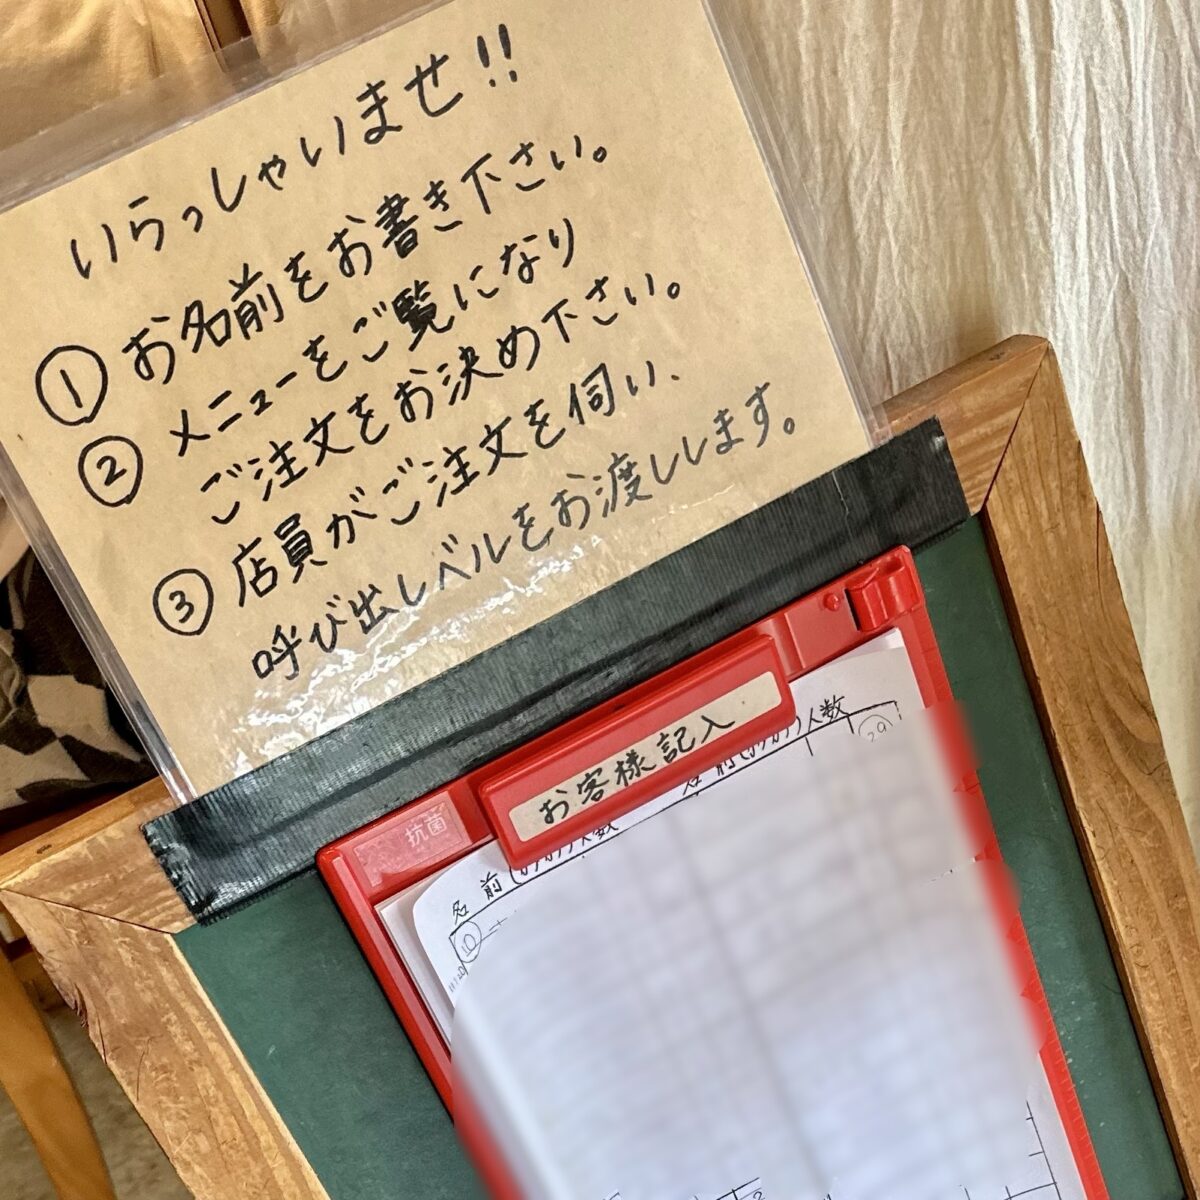 いらっしゃいませ!!
① お名前をお書き下さい。
② メニューをご覧になり
ご注文をお決め下さい。
③ 店員がご注文を伺い、
呼び出しベルをお渡しします。
お客様記入
抗菌
人数
名前
人数
29
10